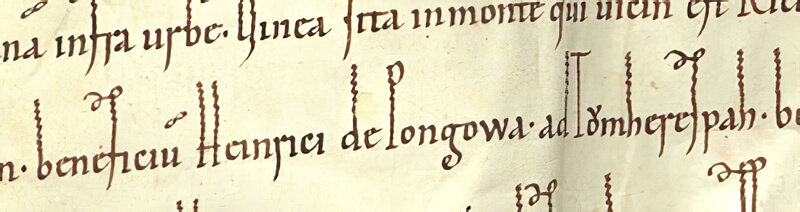 na infra urbe. Uinea sita in monte qui uicin est Ric
n. beneficiu Heinrici de longowa. ad Tomheresbah. be